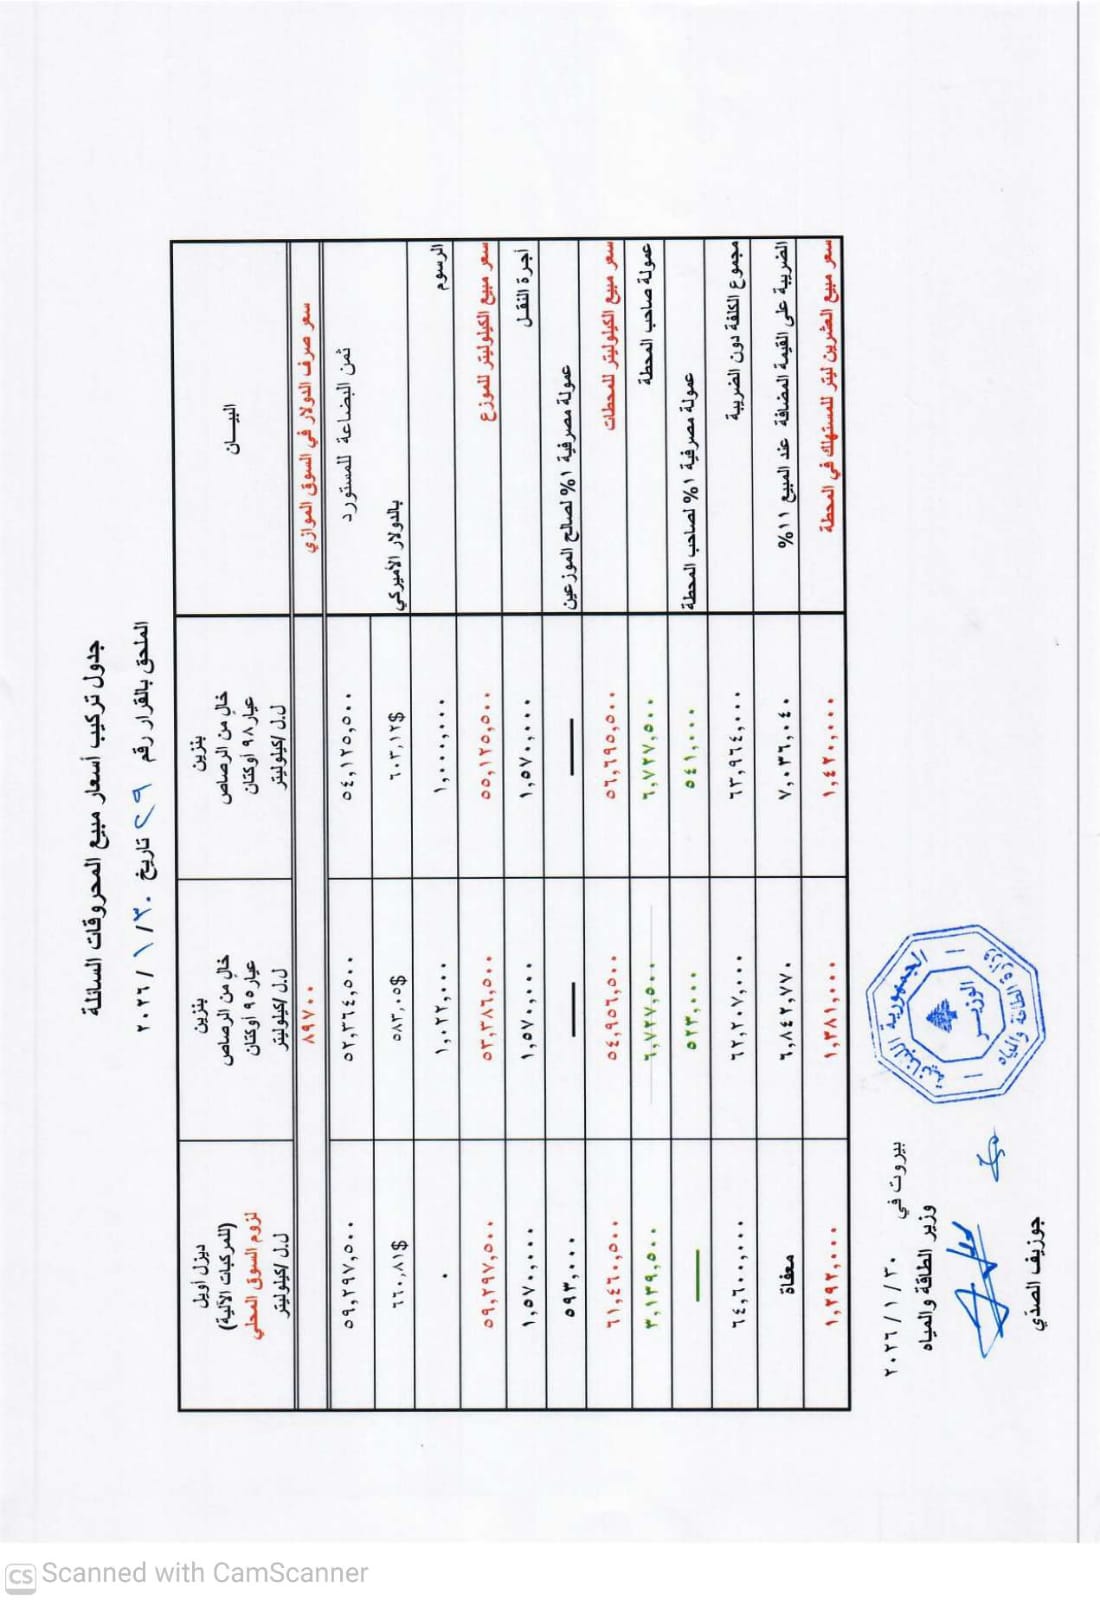 جدول تركيب أسعار مبيع المحروقات السائلة
الملحق بالقرار رقم ٢٩ تاريخ ٢٠٢٦/١/٣٠
البيـان
بنزين
خالٍ من الرصاص
عيار ٩٨ أوكتان
ل.ل/كيلوليتر
بنزين
خالٍ من الرصاص
عيار ٩٥ أوكتان
ل.ل/كيلوليتر
ديزل أويل
(للمركبات الآلية)
لزوم السوق المحلي
ل.ل/كيلوليتر
سعر صرف الدولار في السوق الموازي ٨٩٧٠٠
ثمن البضاعة للمستورد ٥٤,١٢٥,٥٠٠ ٥٢,٣٦٤,٥٠٠ ٥٩,٢٩٧,٥٠٠
بالدولار الأميركي ٦٠٣,١٢$ ٥٨٣,٠٥$ ٦٦٠,٨١$
الرسوم ١,٠٠٠,٠٠٠ ١,٠٢٢,٠٠٠ ٠
سعر مبيع الكيلوليتر للموزع ٥٥,١٢٥,٥٠٠ ٥٣,٣٨٦,٥٠٠ ٥٩,٢٩٧,٥٠٠
أجرة النقـل ١,٥٧٠,٠٠٠ ١,٥٧٠,٠٠٠ ١,٥٧٠,٠٠٠
عمولة مصرفية ١% لصالح الموزعين — — ٥٩٣,٠٠٠
سعر مبيع الكيلوليتر للمحطات ٥٦,٦٩٥,٥٠٠ ٥٤,٩٥٦,٥٠٠ ٦١,٤٦٠,٥٠٠
عمولة صاحب المحطة ٦,٧٢٧,٥٠٠ ٦,٧٢٧,٥٠٠ ٣,١٣٩,٥٠٠
عمولة مصرفية ١% لصاحب المحطة ٥٤١,٠٠٠ ٥٢٣,٠٠٠ —
مجموع الكلفة دون الضريبة ٦٣,٩٦٤,٠٠٠ ٦٢,٢٠٧,٠٠٠ ٦٤,٦٠٠,٠٠٠
الضريبة على القيمة المضافة عند المبيع ١١% ٧,٠٣٦,٠٤٠ ٦,٨٤٢,٧٧٠ معفاة
سعر مبيع العشرين ليتر للمستهلك في المحطة ١,٤٢٠,٠٠٠ ١,٣٨١,٠٠٠ ١,٢٩٢,٠٠٠
بيروت في ٢٠٢٦/١/٣٠
وزير الطاقة والمياه
جوزيف الصدّي
الجمهورية اللبنانية
الوزير
وزارة الطاقة والمياه
CS Scanned with CamScanner